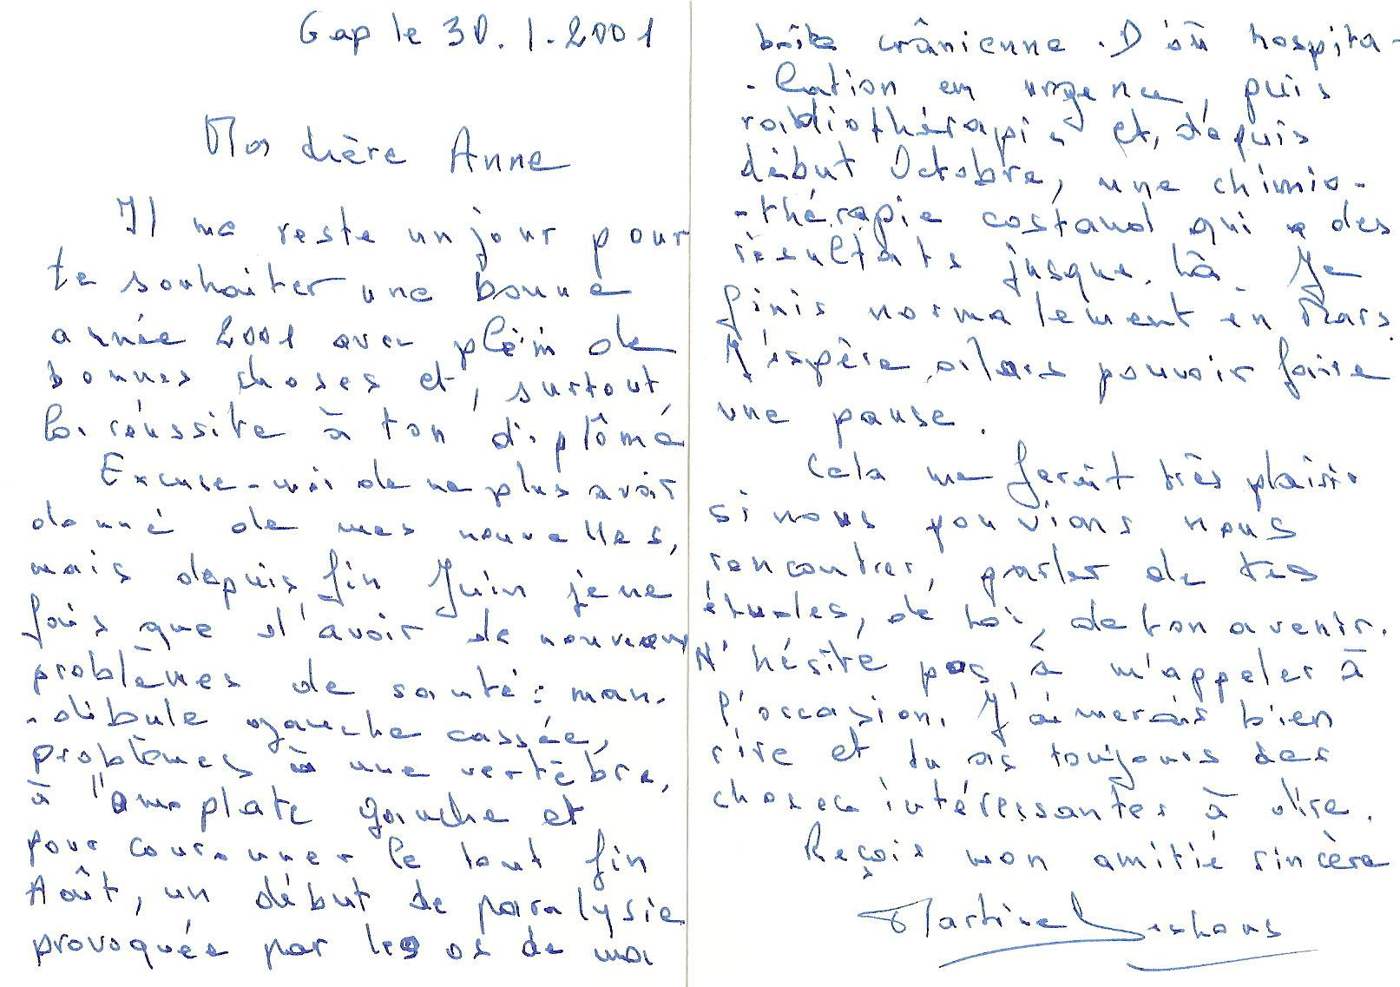 Gap le 30.1.2001
Ma chère Anne
Il me reste un jour pour
te souhaiter une bonne
année 2001 avec plein de
bonnes choses et, surtout,
la réussite à ton diplôme
Excuse-moi de ne plus avoir
donné de mes nouvelles,
mais depuis fin Juin je ne
fais que d'avoir de nouveaux
problèmes de santé : man-
-dibule gauche cassée,
problèmes à une vertèbre,
à l'omoplate gauche et
pour couronner le tout fin
Août, un début de paralysie
provoquée par les os de ma
boîte crânienne. D'où hospita-
-lisation en urgence, puis
radiothérapie et, depuis
début Octobre, une chimio-
-thérapie costaud qui a des
résultats jusque là. Je
finis normalement en Mars.
J'espère alors pouvoir faire
une pause.
Cela me ferait très plaisir
si nous pouvions nous
rencontrer, parler de tes
études, de toi, de ton avenir.
N'hésite pas à m'appeler à
l'occasion. J'aimerais bien
rire et tu as toujours des
choses intéressantes à dire.
Reçois mon amitié sincère
Martine